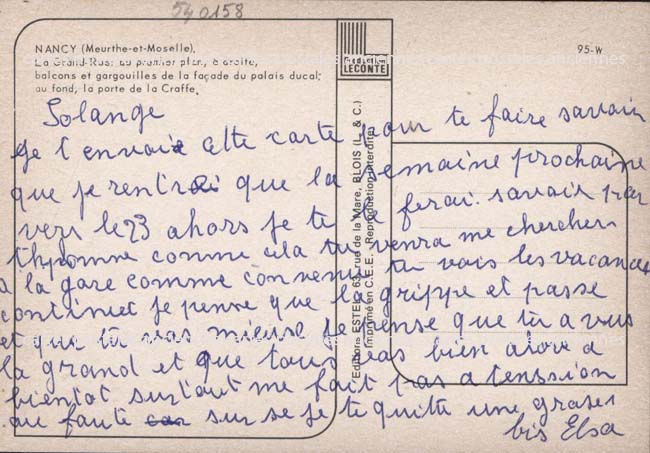 540158
NANCY (Meurthe-et-Moselle).
La Grand-Rue: au premier plan, à droite,
balcons et gargouilles de la façade du palais ducal;
au fond, la porte de la Craffe.
95-W
Production
LECONTE
Editions ESTEL, 63, rue de la Mare, BLOIS (L. & C.)
Imprimé en C.E.E. Reproduction interdite
Solange
Je t'envoie cette carte pour te faire savoir
que je rentrai que la semaine prochaine
vers le 23 ahors je te le ferai savoir par
thyponne comme cela tu venra me chercher
a la gare comme convenu tu vois les vacances
continuet je pense que la grippe et passe
et que tu vas mieuse je pense que tu a vus
la grand et que tous vas bien alore a
bientot surtout me fait pas atenssion
au faute sur se je te quitte une groses
bis Elsa